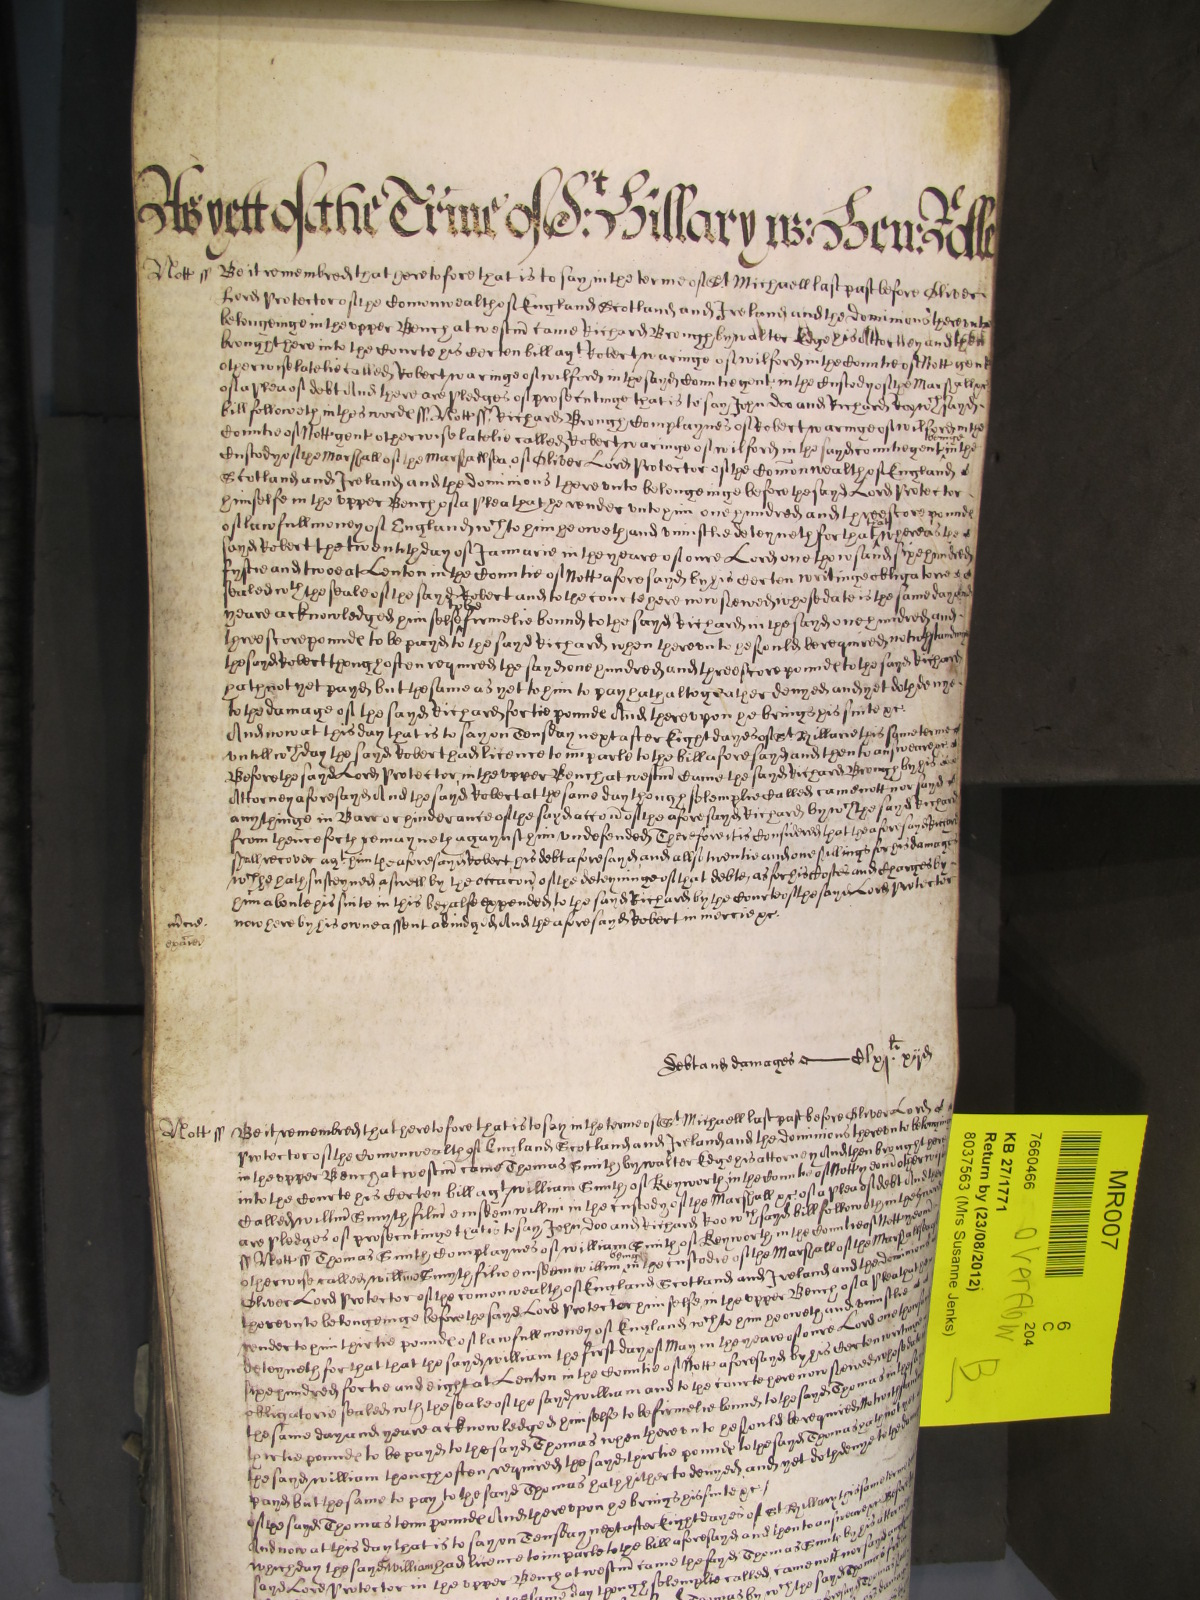 As yett of the Terme of St: Hillary ws: Hen: Rolle
Nott ss Be it remembred that heretofore that is to say in the terme of St Michaell last past before Oliver
Lord Protector of the Comonwealth of England Scotland and Ireland and the dominions thereunto
belongeinge in the upper Bench at westm came Richard Brough by walter Edge his Attorney and then
brought here into the Courte his Certen bill agt Robert waringe of wilford in the Countie of Nott gent
otherwise latelie called Robert waringe of wilford in the sayd Countie gent in the Custody of the Marshall &c
of a plea of debt And there are pledges of prosecutinge that is to say John Doo and Richard Roo wch sayd
bill followeth in these wordes ss. Nott ss. Richard Brough Complaynes of Robert waringe of wilford in the
Countie of Nott gent otherwise latelie called Robert waringe of wilford in the sayd countie gent beinge in the
Custody of the Marshall of the Marshallsea of Oliver Lord Protector of the Comonwealth of England
Scotland and Ireland and the dominions thereunto belongeinge before the sayd Lord Protector
himselfe in the upper Bench of a plea that he render unto him one hundred and threescore pounds
of lawfull money of England wch to him he oweth and uniustlie deteyneth for that whereas the
sayd Robert the twentith day of Januarie in the yeare of oure Lord one thowsand sixe hundred
fyftie and twoe at Lenton in the Countie of Nott aforesayd by his Certen writinge obligatorie
sealed wth the seale of the sayd Robert and to the courte here now shewed whose date is the same day and
yeare acknowledged himselfe to be firmelie bound to the sayd Richard in the sayd one hundred and
threescore pounds to be payd to the sayd Richard when thereunto he should be required notwthstandinge
the sayd Robert though often required the sayd one hundred and threescore pounds to the sayd Richard
hath not yet payd but the same as yet to him to pay hath altogeather denyed and yet doth denye
to the damage of the sayd Richard fortie pounds And thereupon he brings his suite &c.
And now at this day that is to say on Tuesday next after Eight dayes of St Hillarie this same terme
untill wch day the sayd Robert had licence to imparle to the bill aforesayd and then to answeare &c
Before the sayd Lord Protector in the upper Bench at westm Came the sayd Richard Brough by his
Attorney aforesayd And the sayd Robert at the same day though solemplie Called came nott nor sayd
anythinge in Barr or hinderance of the sayd accon of the aforesayd Richard by wch the sayd Richard
from thenceforth remayneth agaynst him undefended Therefore it is Considered that the aforesayd Richard
shall recover agt him the aforesayd Robert his debt aforesayd and allso twentie and one shillings for his damages
wch he hath susteyned aswell by the occacon of the deteyninge of that debte as for his Costes and Charges by
him aboute his suite in this behalfe expended to the sayd Richard by the Courte of the sayd Lord Protector
now here by his owne assent adiudged And the aforesayd Robert in mercie &c.
Debt and damages Clxjli xijd
Nott ss Be it remembred that heretofore that is to say in the terme of St Michaell last past before Oliver Lord
Protector of the Comonwealth of England Scotland and Ireland and the dominions thereunto belongeinge
in the upper Bench at westm came Thomas Smith by walter Edge his attorney And then brought here
into the Courte his Certen bill agt william Smith of Keyworth in the Countie of Nott yeom otherwise
Called willm Smyth filio eiusdem willmi in the custody of the Marshall &c of a plea of debt And there
are pledges of prosecutinge that is to say John Doo and Richard Roo wch sayd bill followeth in these words
ss Nott ss Thomas Smith Complaynes of william Smith of Keyworth in the Countie of Nott yeom
otherwise called willm Smyth filio eiusdem willmi beinge in the custodie of the Marshall of the Marshallsea of
Oliver Lord Protector of the Comonwealth of England Scotland and Ireland and the dominions
thereunto belongeinge before the sayd Lord Protector himselfe in the upper Bench of a plea that he
render to him thirtie pounds of lawfull money of England wch to him he oweth and uniustlie
deteyneth for that that the sayd william the first day of May in the yeare of oure Lord one thowsand
sixe hundred fortie and eight at Lenton in the Countie of Nott aforesayd by his Certen writinge
obligatorie sealed wth the seale of the sayd william and to the courte here now shewed whose date is
the same day and yeare acknowledged himselfe to be firmelie bound to the sayd Thomas in the sayd
thirtie pounds to be payd to the sayd Thomas when thereunto he should be required Notwithstandinge
the sayd william though often required the sayd thirtie pounds to the sayd Thomas hath not yet
payd but the same to pay to the sayd Thomas hath hitherto denyed and yet doth denye to the damage
of the sayd Thomas tenn pounds And thereupon he brings his suite &c.
And now at this day that is to say on Tuesday next after Eight dayes of St Hillary this same terme
which day the sayd William had licence to imparle to the bill aforesayd and then to answeare &c Before
sayd Lord Protector in the upper Bench at westm came the sayd Thomas Smith by his attorney
same day though solemplie called came nott nor sayd
Thomas by wch the sayd Thomas
MR007
6
C
204
7660466
KB 27/1771
Return by (23/08/2012)
8037563 (Mrs Susanne Jenks)
overflow
B